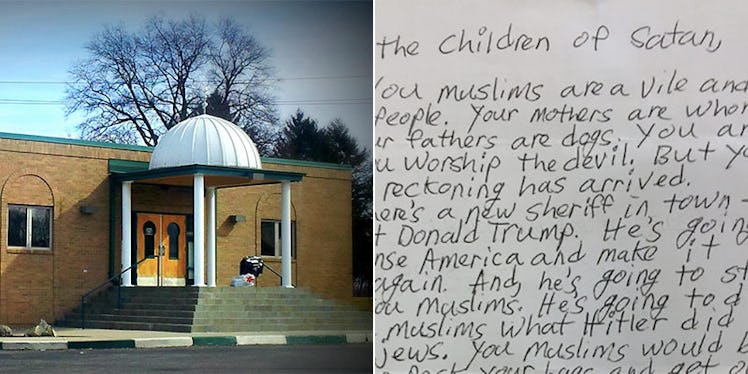 the children of Satan,
You muslims are a vile and
People. Your mothers are whor
r fathers are dogs. You ar
u worship the devil. But yo
reckoning has arrived.
ere's a new sheriff in town -
t Donald Trump. He's going
nse America and make it
again. And, he's going to st
ou muslims. He's going to d
muslims what Hitler did
jews. You muslims would b
Pack your bags and get o